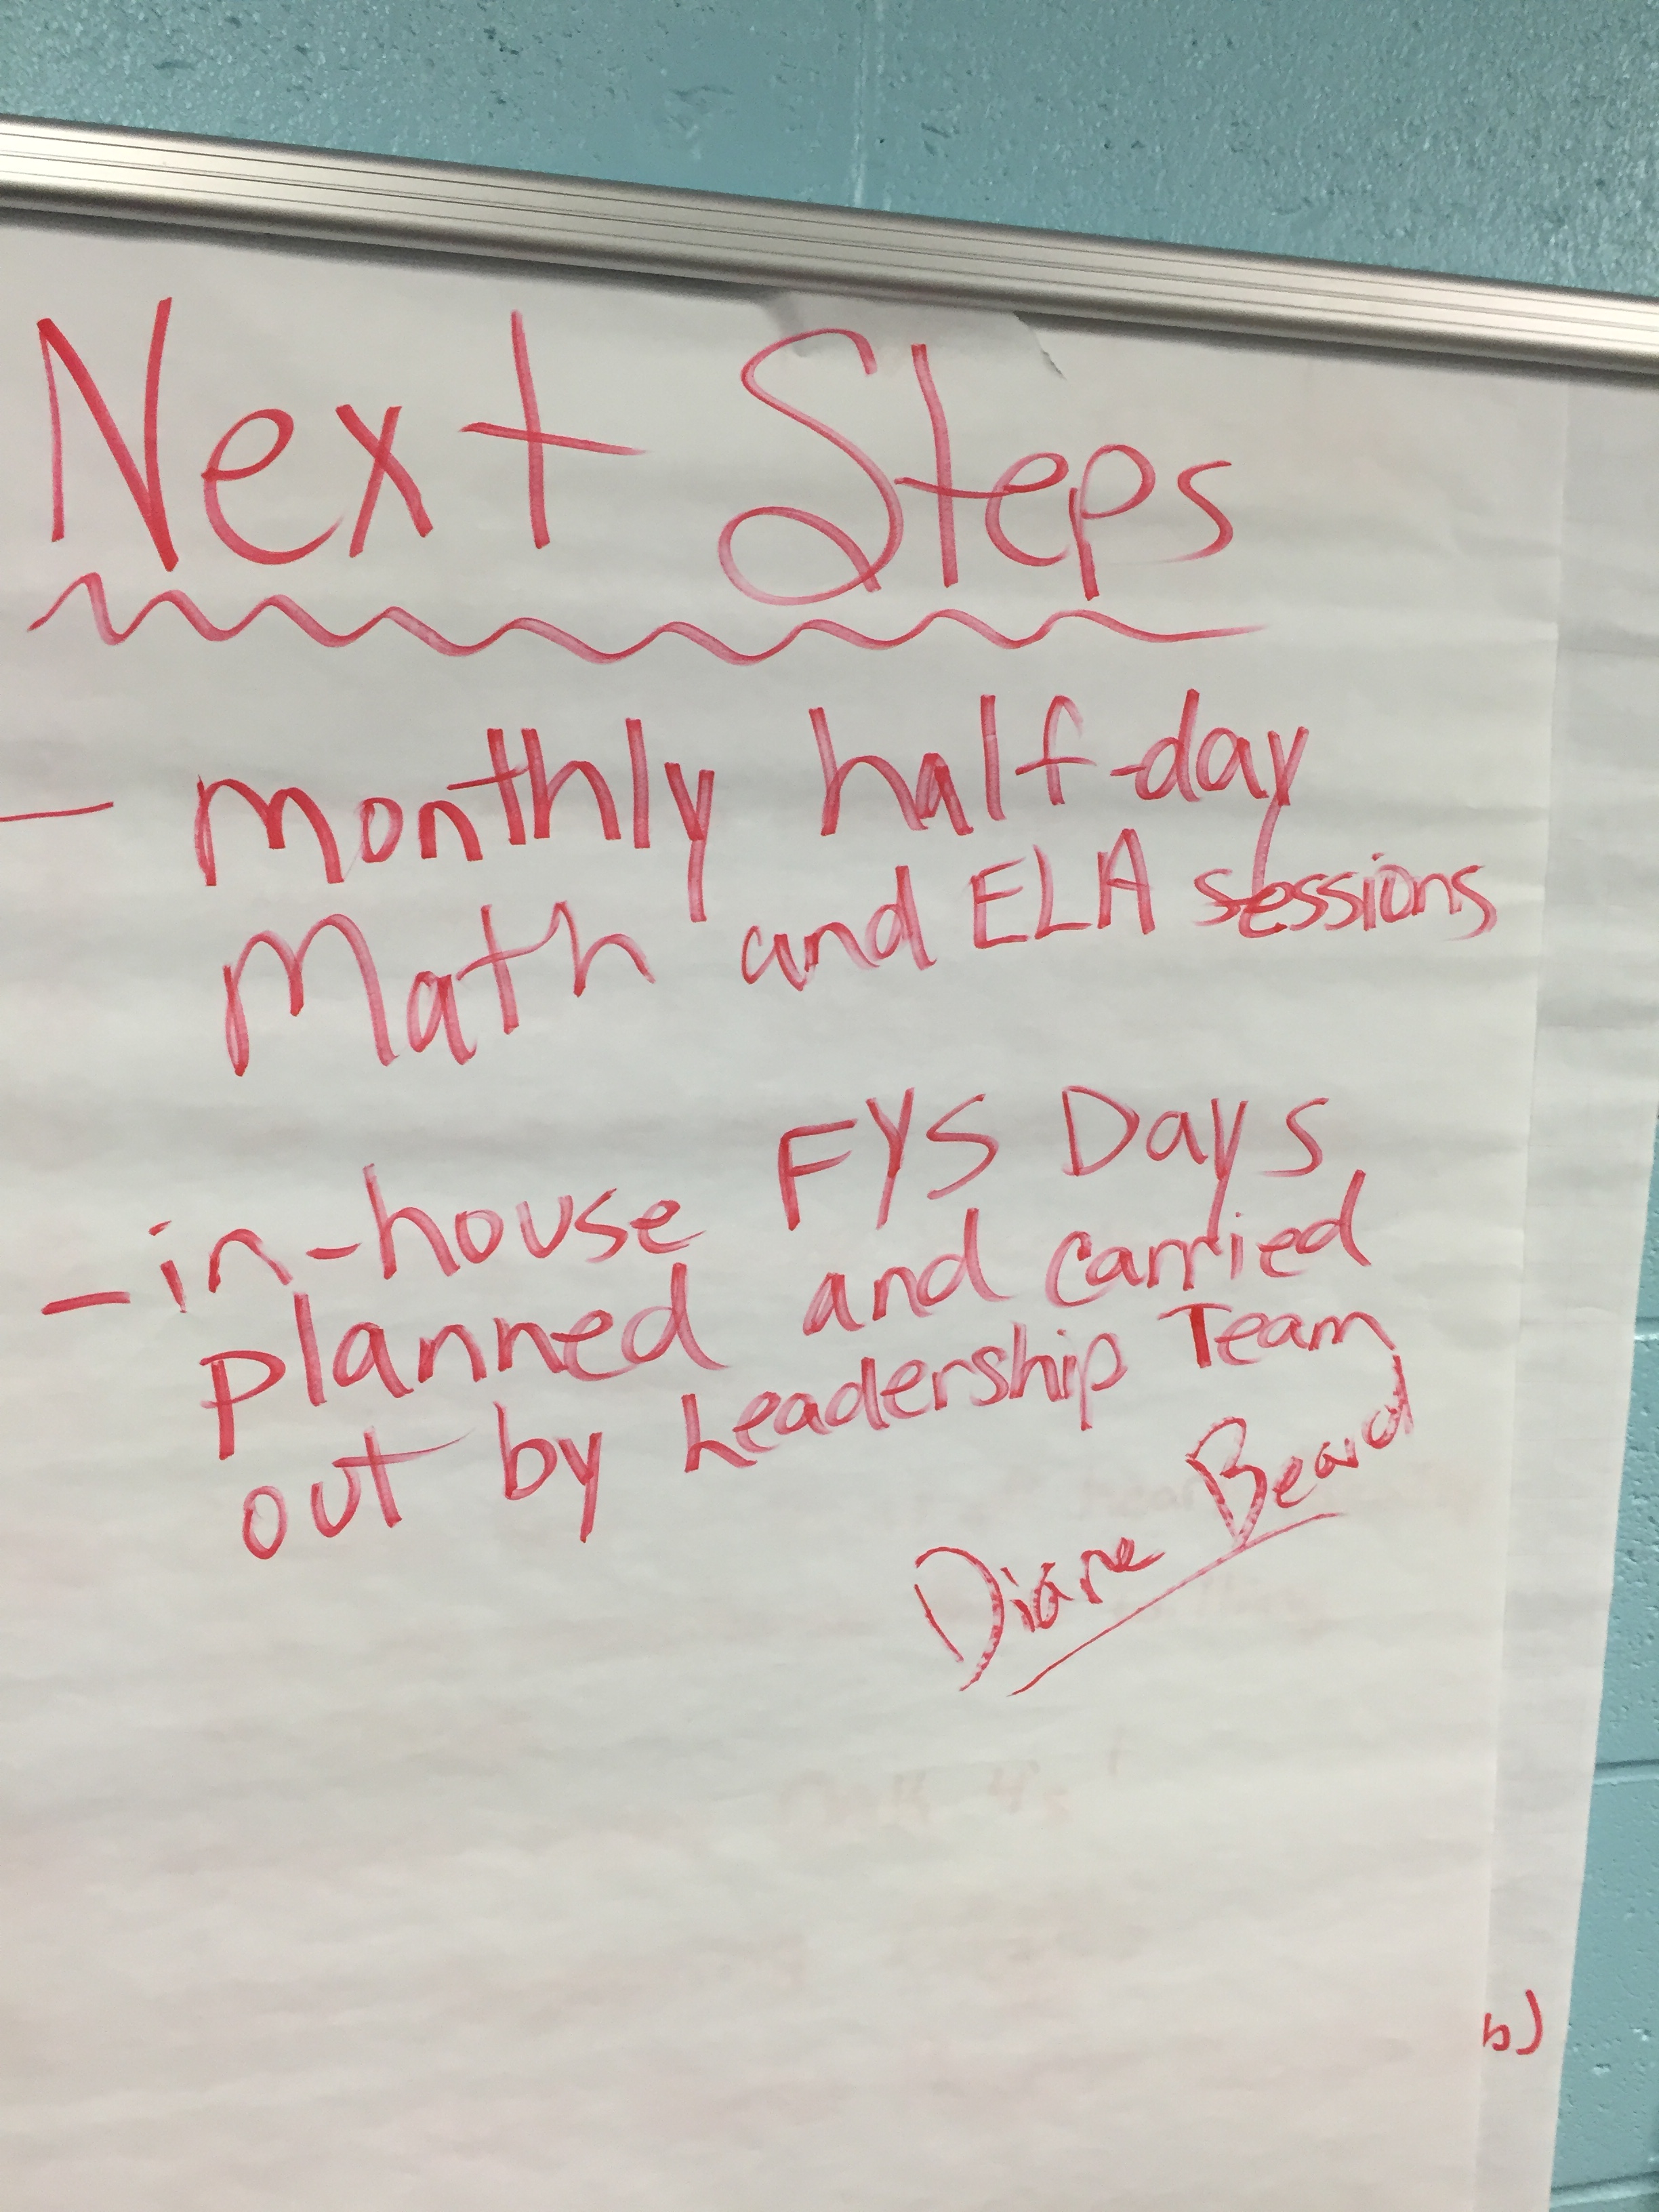 Next Steps
— monthly half-day
Math and ELA sessions
— in-house FYS Days
planned and carried
out by Leadership Team
Diane Beard
b)